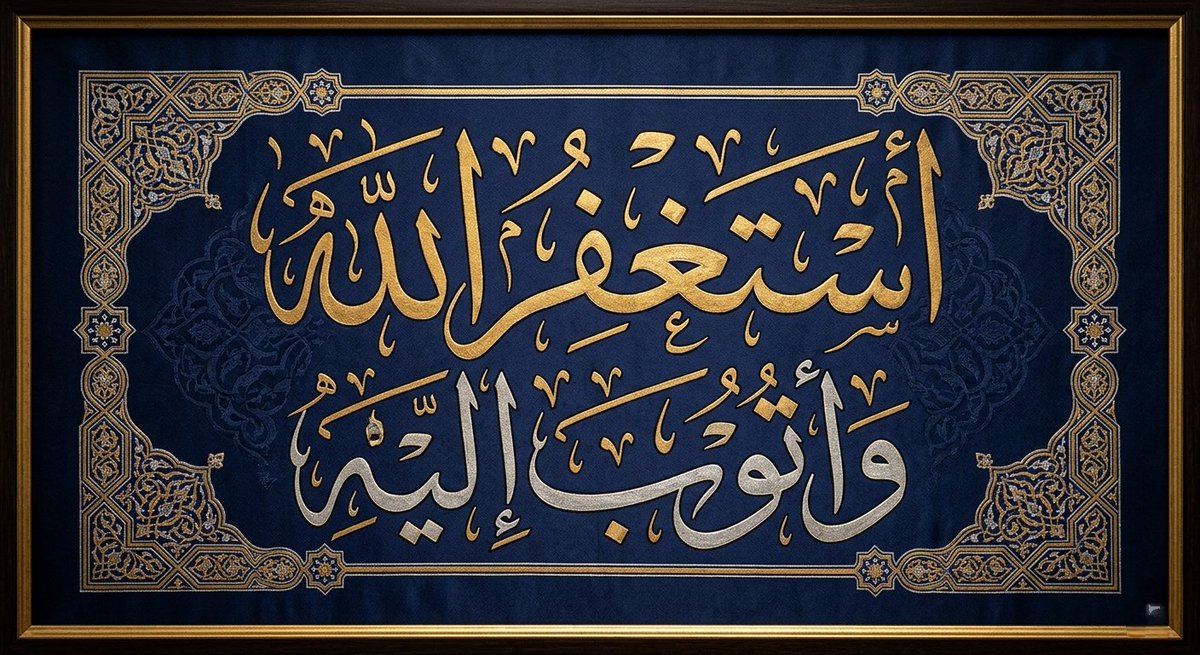 أَسْتَغْفِرُ اللَّهَ
وَأَتُوبُ إِلَيْهِ